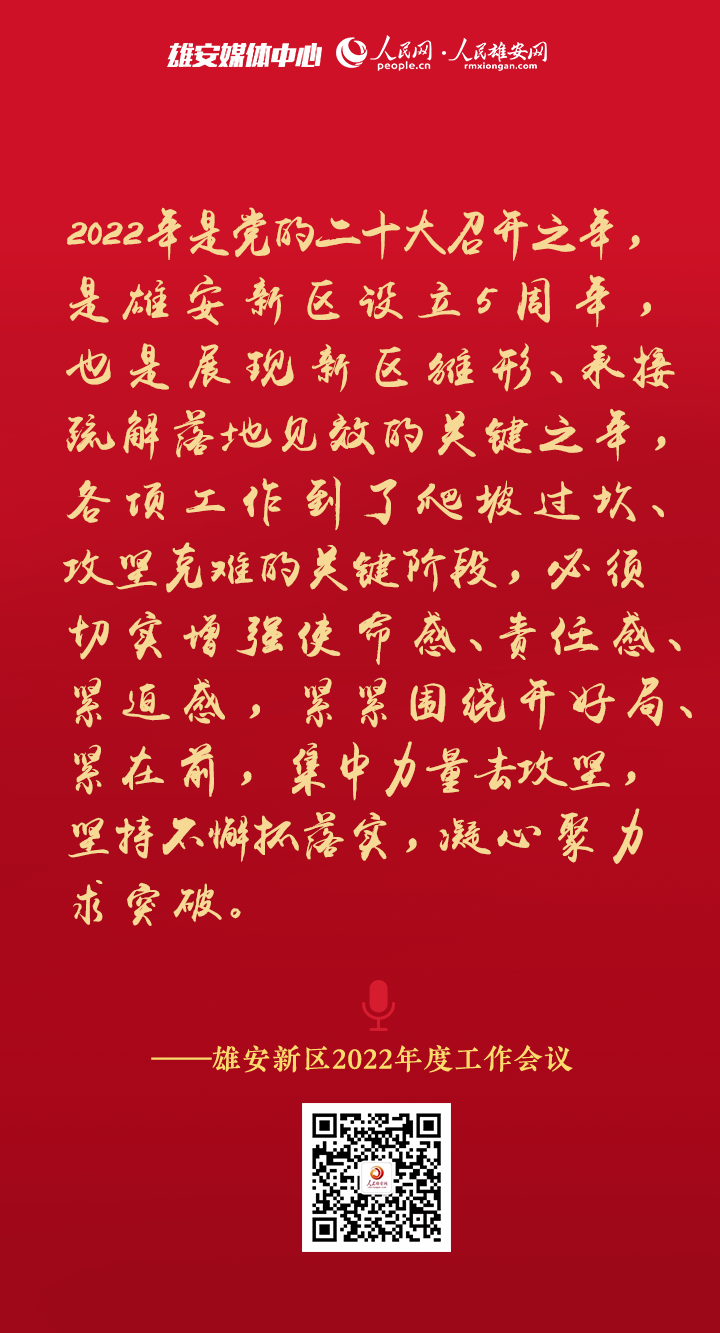 雄安媒体中心 人民网·人民雄安网
people.cn rmxiongan.com
2022年是党的二十大召开之年，
是雄安新区设立5周年，
也是展现新区雏形、承接
疏解落地见效的关键之年，
各项工作到了爬坡过坎、
攻坚克难的关键阶段，必须
切实增强使命感、责任感、
紧迫感，紧紧围绕开好局、
紧在前，集中力量去攻坚，
坚持不懈抓落实，凝心聚力
求突破。
——雄安新区2022年度工作会议
人民雄安网